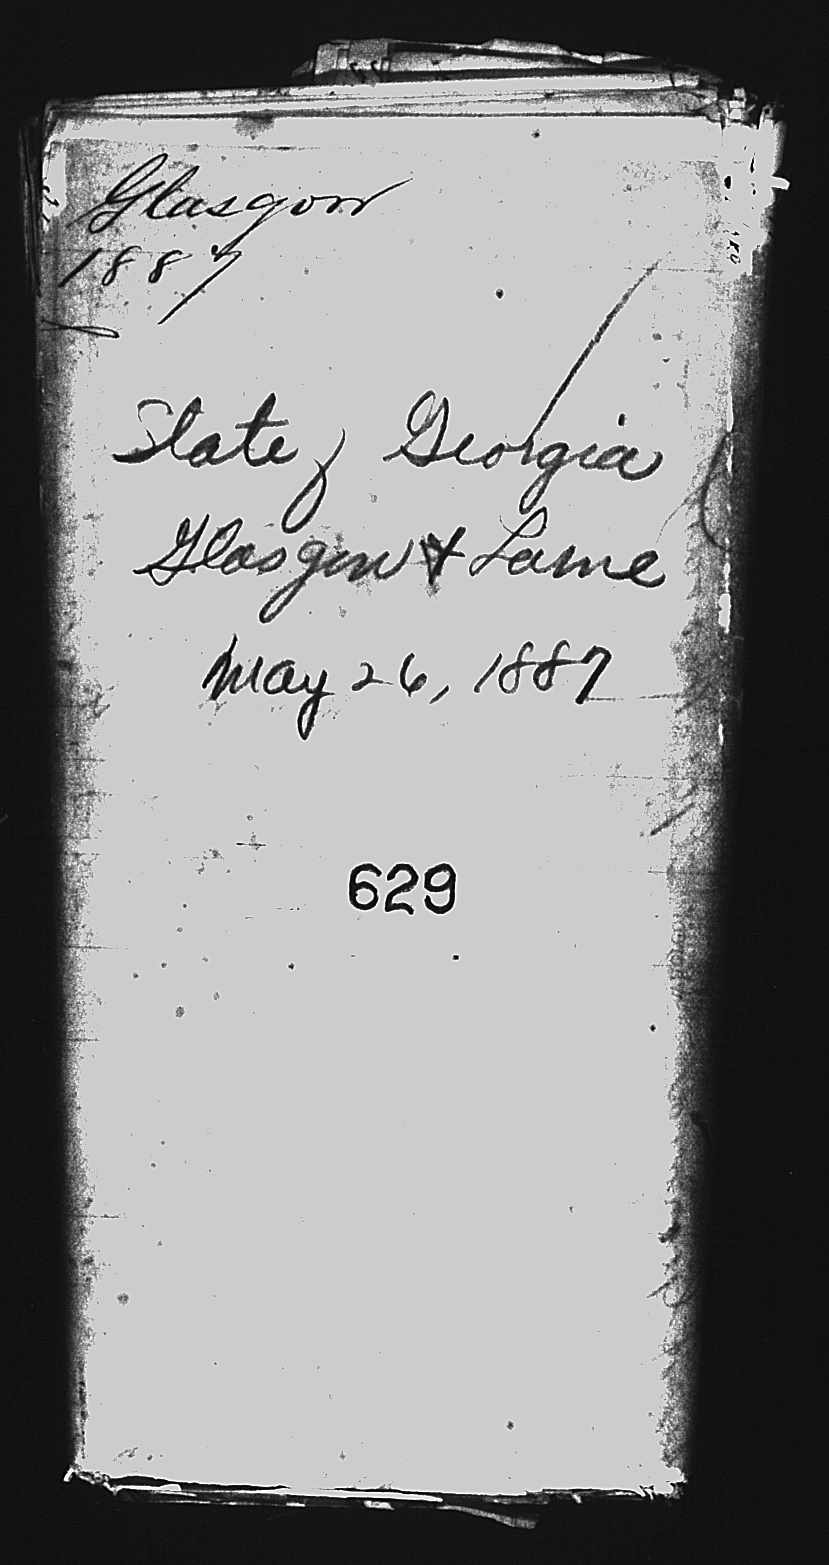 Glasgow
1887
State of Georgia
Glasgow & Lame
May 26, 1887
629